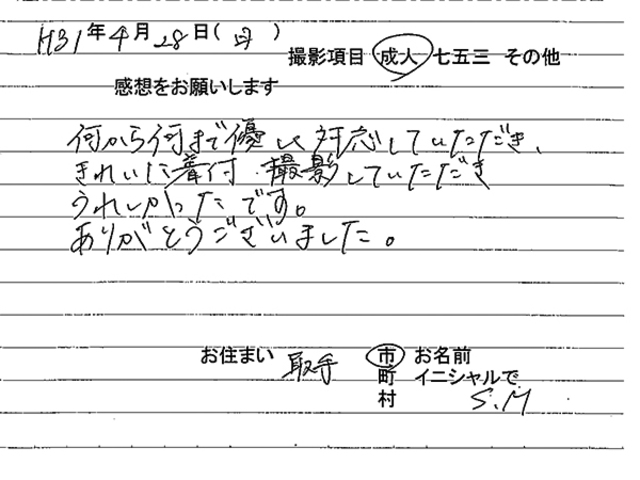 H31年4月28日(日)
撮影項目 成人 七五三 その他
感想をお願いします
何から何まで優しく対応していただき、
きれいに着付・撮影していただき
うれしかったです。
ありがとうございました。
お住まい 取手 市 お名前
町 イニシャルで
村 S.M